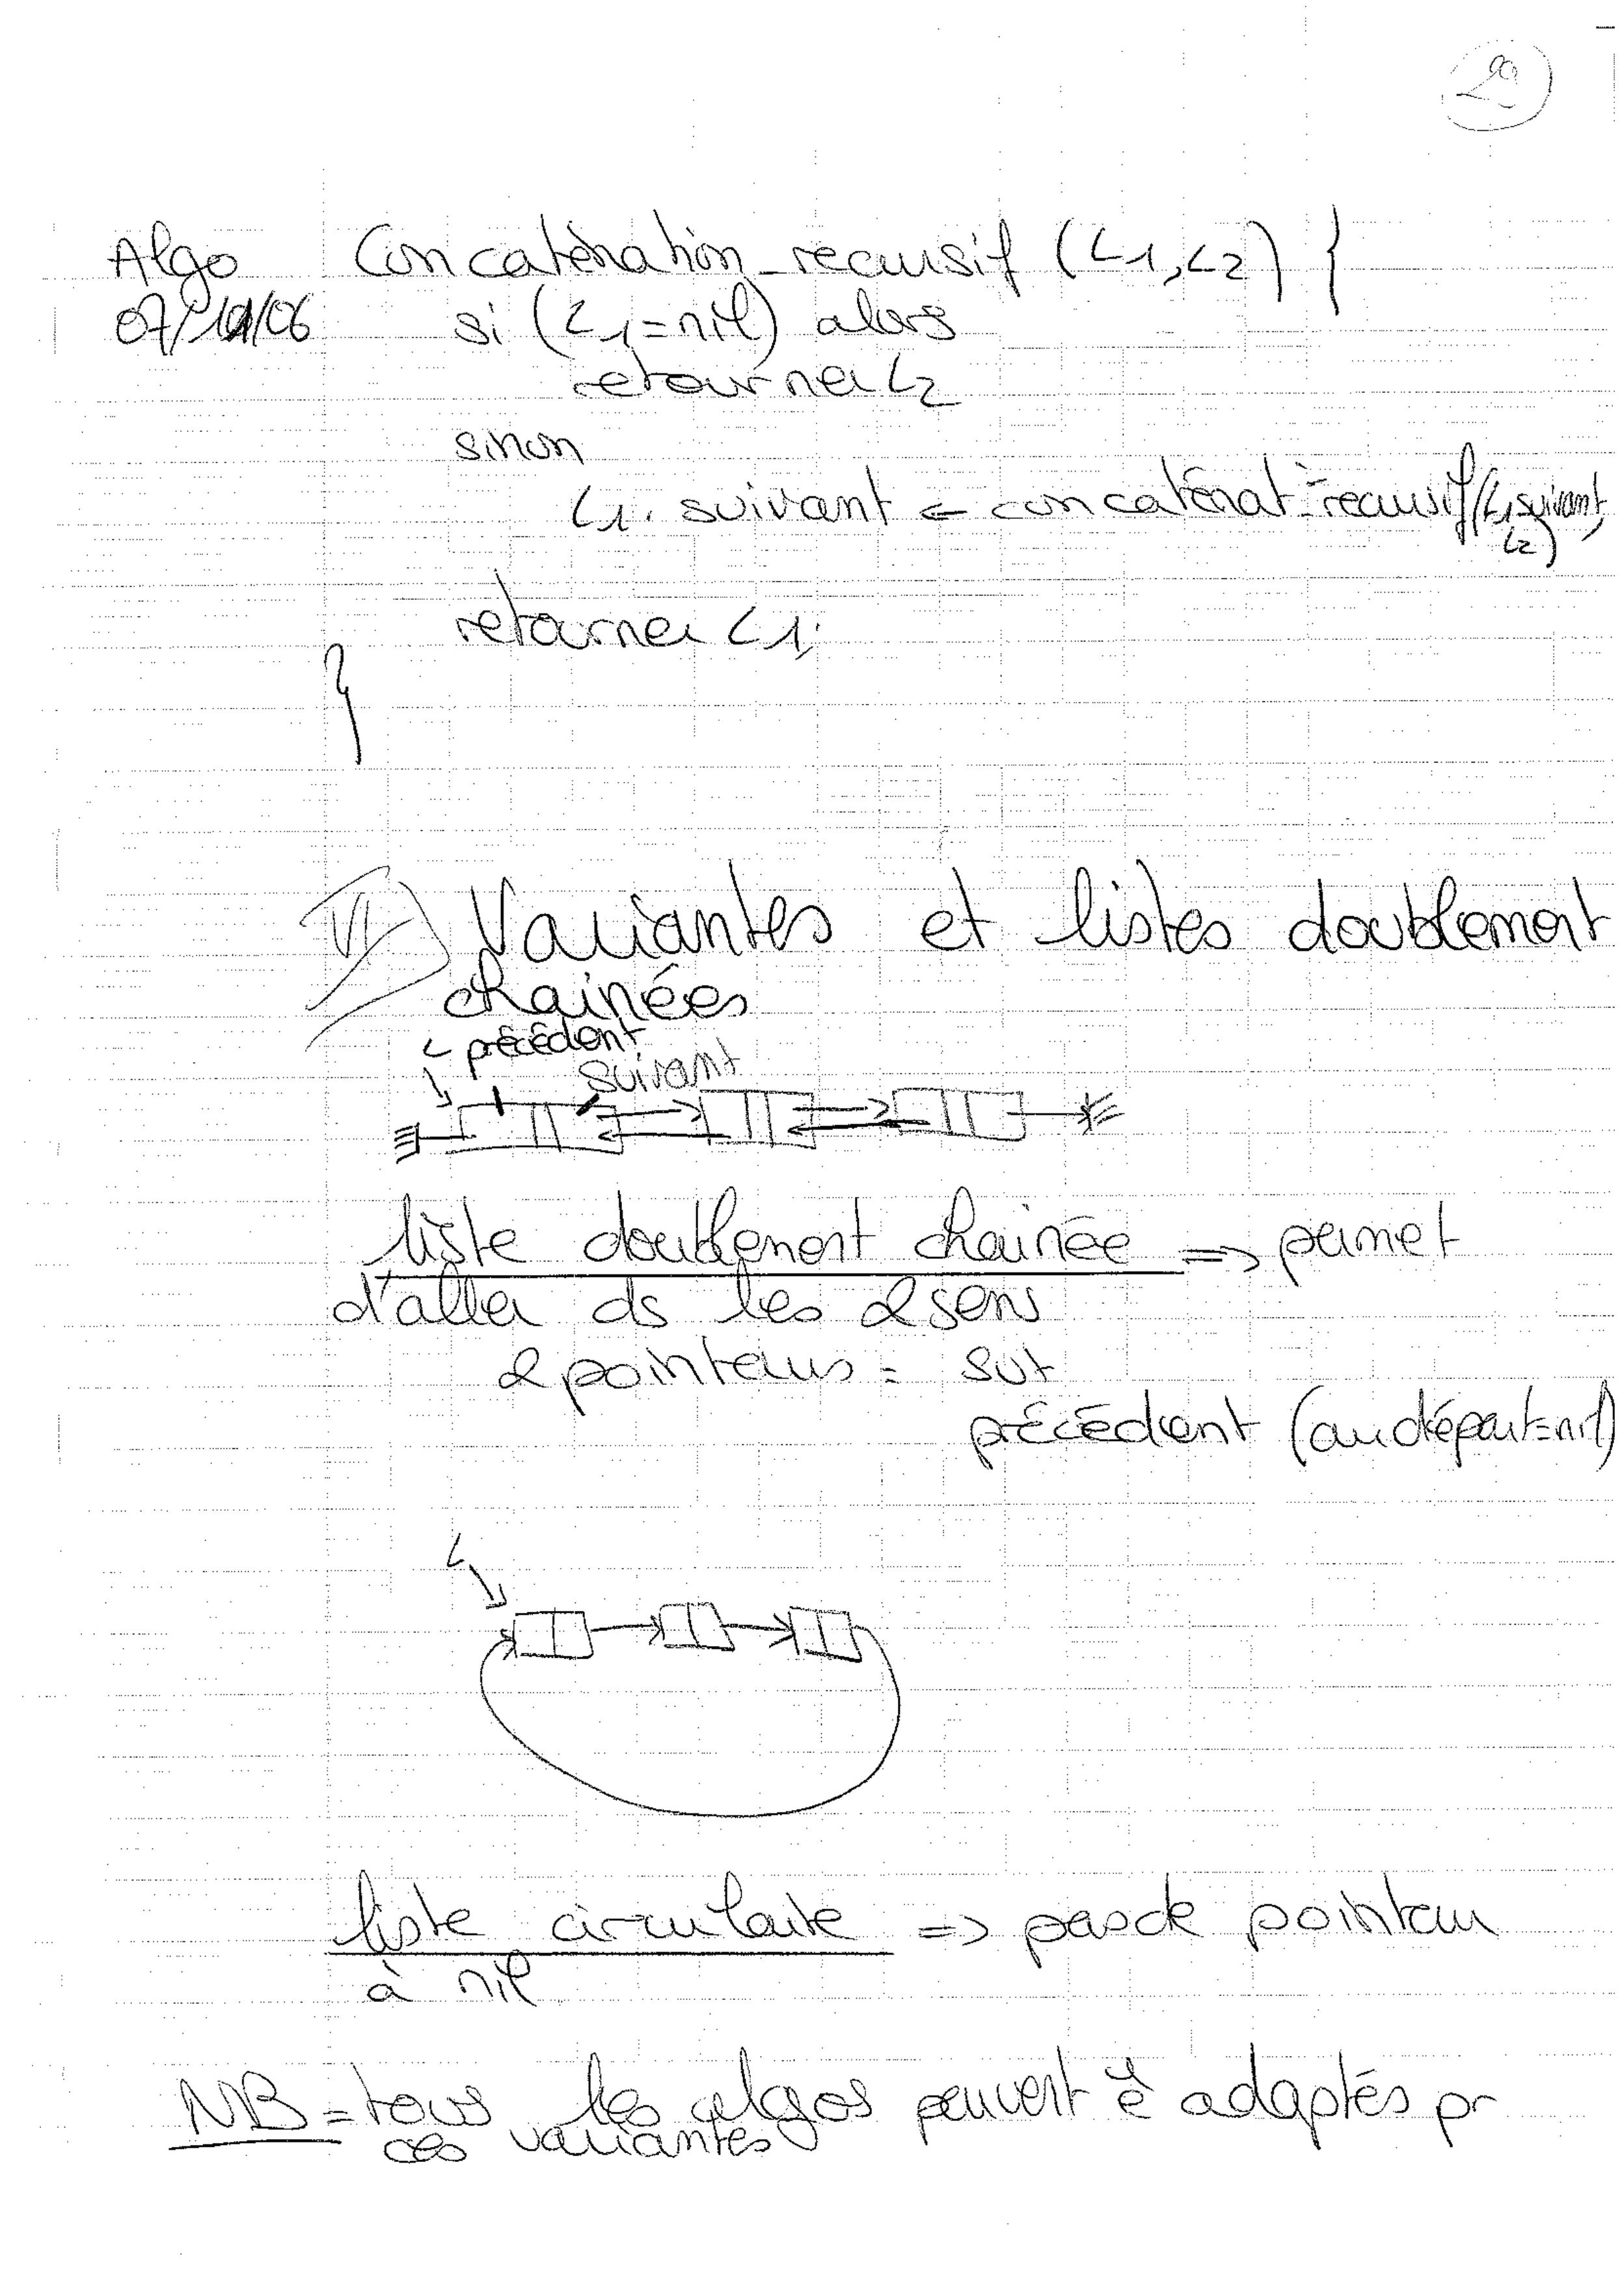 29
Algo Concaténation_recursif (L1, L2) {
07/11/06 si (L1 = nil) alors
retourner L2
sinon
L1. suivant ← concaténat_recursif (L1 suivant,
L2)
retourner L1;
}
VI) Variantes et listes doublement
chainées
L précédent
suivant
liste doublement chainée => permet
d'aller ds les 2 sens
2 pointeurs = svt
précédent (au départ = nil)
L
liste circulaire => pas de pointeur
à nil
NB = tous les algos peuvent ê adaptés pr
ces variantes